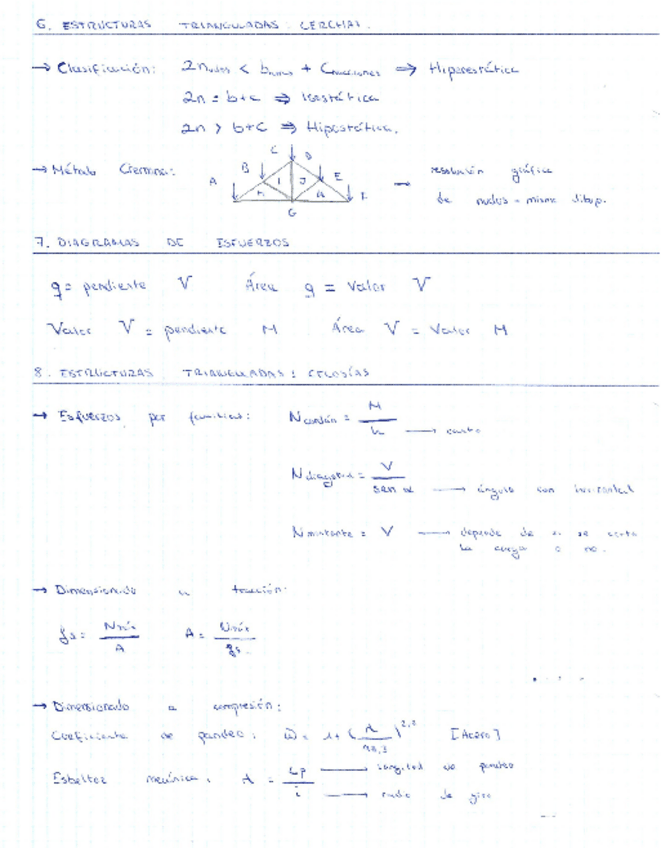 6. ESTRUCTURAS TRIANGULADAS: CERCHAS.
→ Clasificación: 2n nudos < b barras + C reacciones ⇒ Hiperestática
2n = b+c ⇒ Isostática
2n > b+c ⇒ Hipostática.
→ Método Cremona:
A B C D E F G H I J K
→ resolución gráfica
de nudos - mismo dibujo.
7. DIAGRAMAS DE ESFUERZOS
q = pendiente V Área q = Valor V
Valor V = pendiente M Área V = Valor M
8. ESTRUCTURAS TRIANGULADAS: CELOSÍAS
→ Esfuerzos por familias: N cordón = M / h → canto
N diagonal = V / sen α → ángulo con horizontal
N montante = V → depende de si se corta
la carga o no.
→ Dimensionado a tracción:
fs = Nmáx / A A = Nmáx / fs.
→ Dimensionado a compresión:
Coeficiente de pandeo: ω = 1+ (λ / )^2,2 [Acero]
Esbeltez mecánica: λ = Lp / i → longitud de pandeo
→ radio de giro